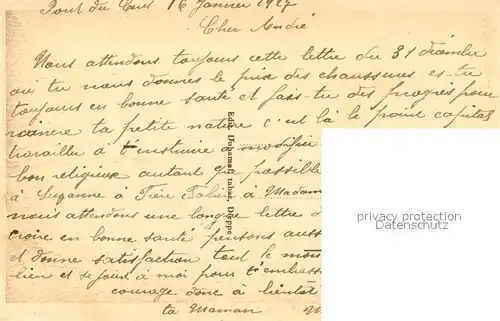 Pont du Cens 16 Janvier 1927
Cher André
Nous attendons toujours cette lettre du 31 décembre
où tu nous donnes le prix des chaussures es-tu
toujours en bonne santé et fais-tu des progrès pour
vaincre ta petite nature c'est là le point capital
travailler à t'instruire à modifier
bon religieux autant que possible
à Suzanne à Frère à Madam
nous attendons une longue lettre d
croire en bonne santé pensons auss
et donne satisfaction tout le mon
bien et se joint à moi pour t'embrass
courage donc à bientôt
ta Maman
Edit. Duhamel, tabac, Dieppe
privacy protection
Datenschutz